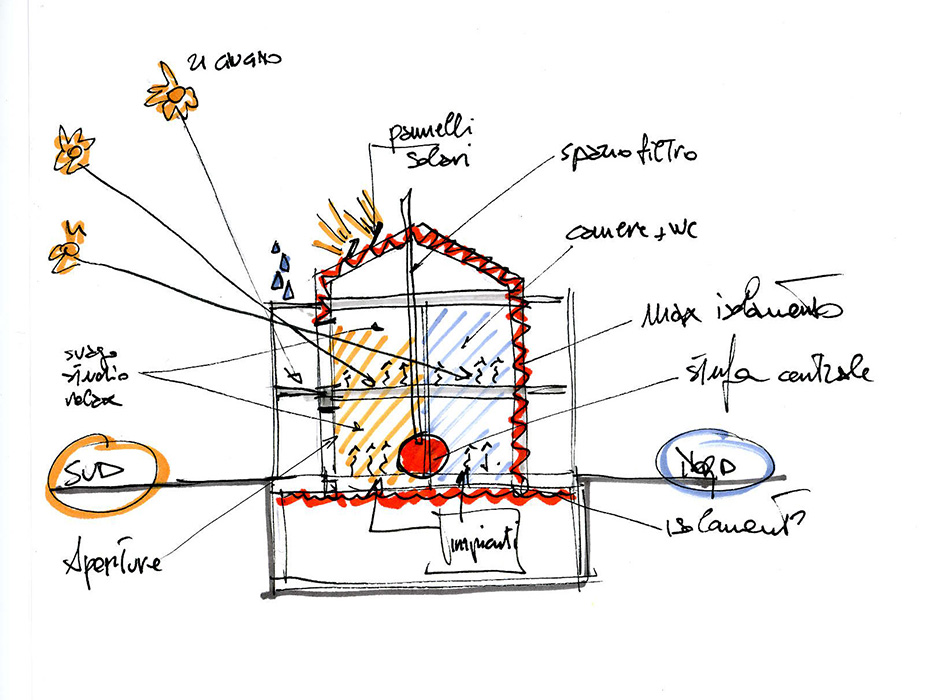 21 GIUGNO
pannelli
solari
spazio filtro
camere + WC
Max isolamento
svago
studio
relax
stufa centrale
SUD
NORD
isolamenti
impianti
Aperture